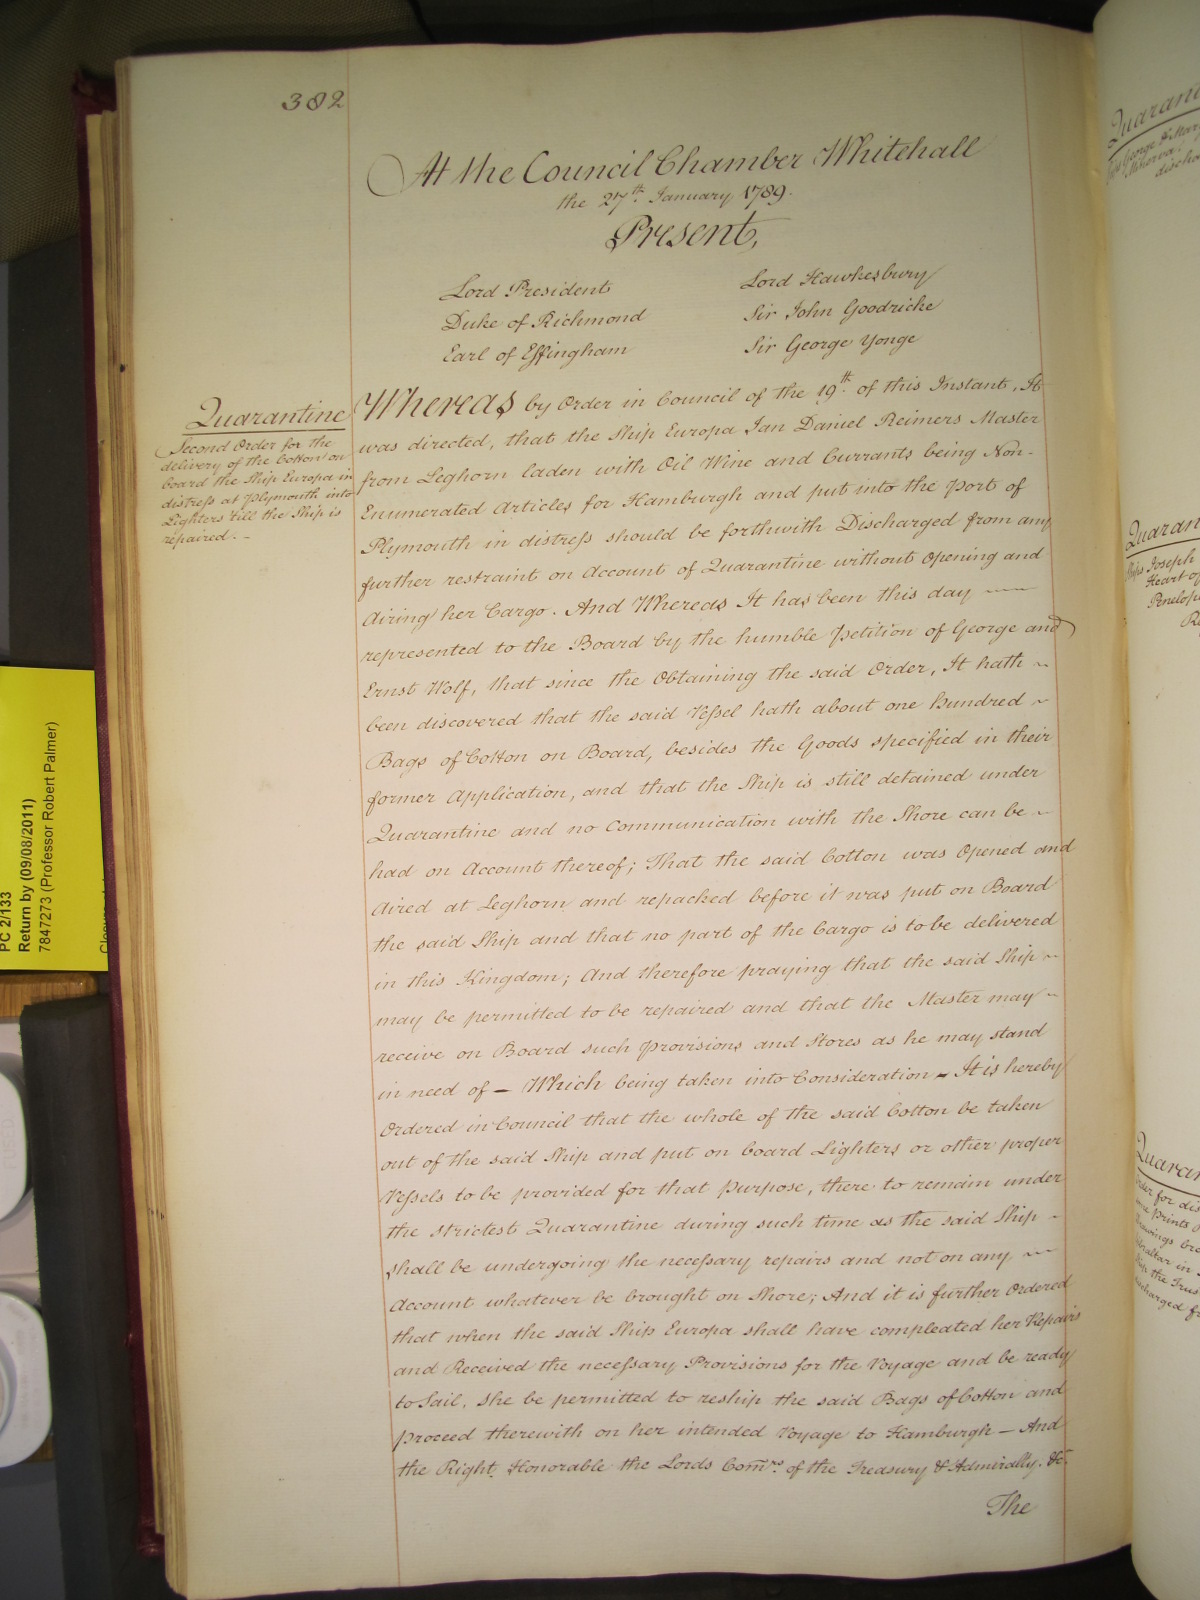 382
At the Council Chamber Whitehall
the 27th. January 1789.
Present,
Lord President
Duke of Richmond
Earl of Effingham
Lord Hawkesbury
Sir John Goodricke
Sir George Yonge
Quarantine
Second Order for the
delivery of the Cotton on
board the Ship Europa in
distress at Plymouth into
Lighters till the Ship is
repaired. -
Whereas by Order in Council of the 19th. of this Instant, It
was directed, that the Ship Europa Jan Daniel Reimers Master
from Leghorn laden with Oil Wine and Currants being Non-
Enumerated Articles for Hamburgh and put into the Port of
Plymouth in distress should be forthwith Discharged from any
further restraint on Account of Quarantine without Opening and
Airing her Cargo. And Whereas It has been this day
represented to the Board by the humble Petition of George and
Ernst Wolf, that since the Obtaining the said Order, It hath
been discovered that the said Vessel hath about one hundred
Bags of Cotton on Board, besides the Goods specified in their
former Application, and that the Ship is still detained under
Quarantine and no Communication with the Shore can be
had on Account thereof; That the said Cotton was Opened and
Aired at Leghorn and repacked before it was put on Board
the said Ship and that no part of the Cargo is to be delivered
in this Kingdom; And therefore praying that the said Ship
may be permitted to be repaired and that the Master may
receive on Board such Provisions and Stores as he may stand
in need of - Which being taken into Consideration - It is hereby
Ordered in Council that the whole of the said Cotton be taken
out of the said Ship and put on board Lighters or other proper
Vessels to be provided for that Purpose, there to remain under
the strictest Quarantine during such time as the said Ship -
shall be undergoing the necessary repairs and not on any
Account whatever be brought on Shore; And it is further Ordered
that when the said Ship Europa shall have compleated her Repairs
and Received the necessary Provisions for the Voyage and be ready
to Sail, she be permitted to reship the said Bags of Cotton and
Proceed therewith on her intended Voyage to Hamburgh - And
the Right Honorable the Lords Comrs. of the Treasury & Admiralty. &c.
The
PC 2/133
Return by (09/08/2011)
7847273 (Professor Robert Palmer)